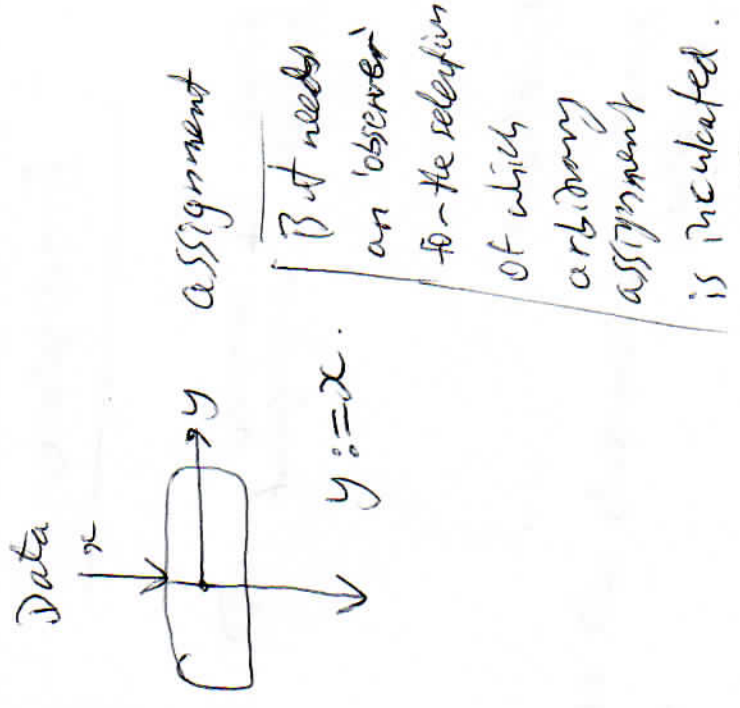 Data
x
y
y := x.
assignment
But needs
an 'observer'
for the selection
of which
arbitrary
assignment
is inculcated.